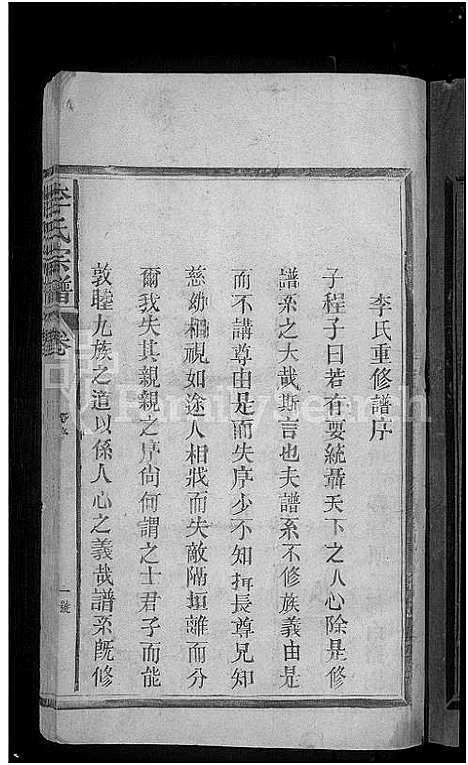 李氏重修譜序
子程子曰若有要統聶天下之人心除是修
譜系之大哉斯言也夫譜系不修族義由是
而不講尊由是而失序少不知長尊兄知
慈幼相視如途人相戕而失敵隔垣離而分
爾我失其親親之序尙何謂之士君子而能
敦睦九族之道以係人心之義哉譜系旣修
李氏宗譜
卷
一號
FamilySearch